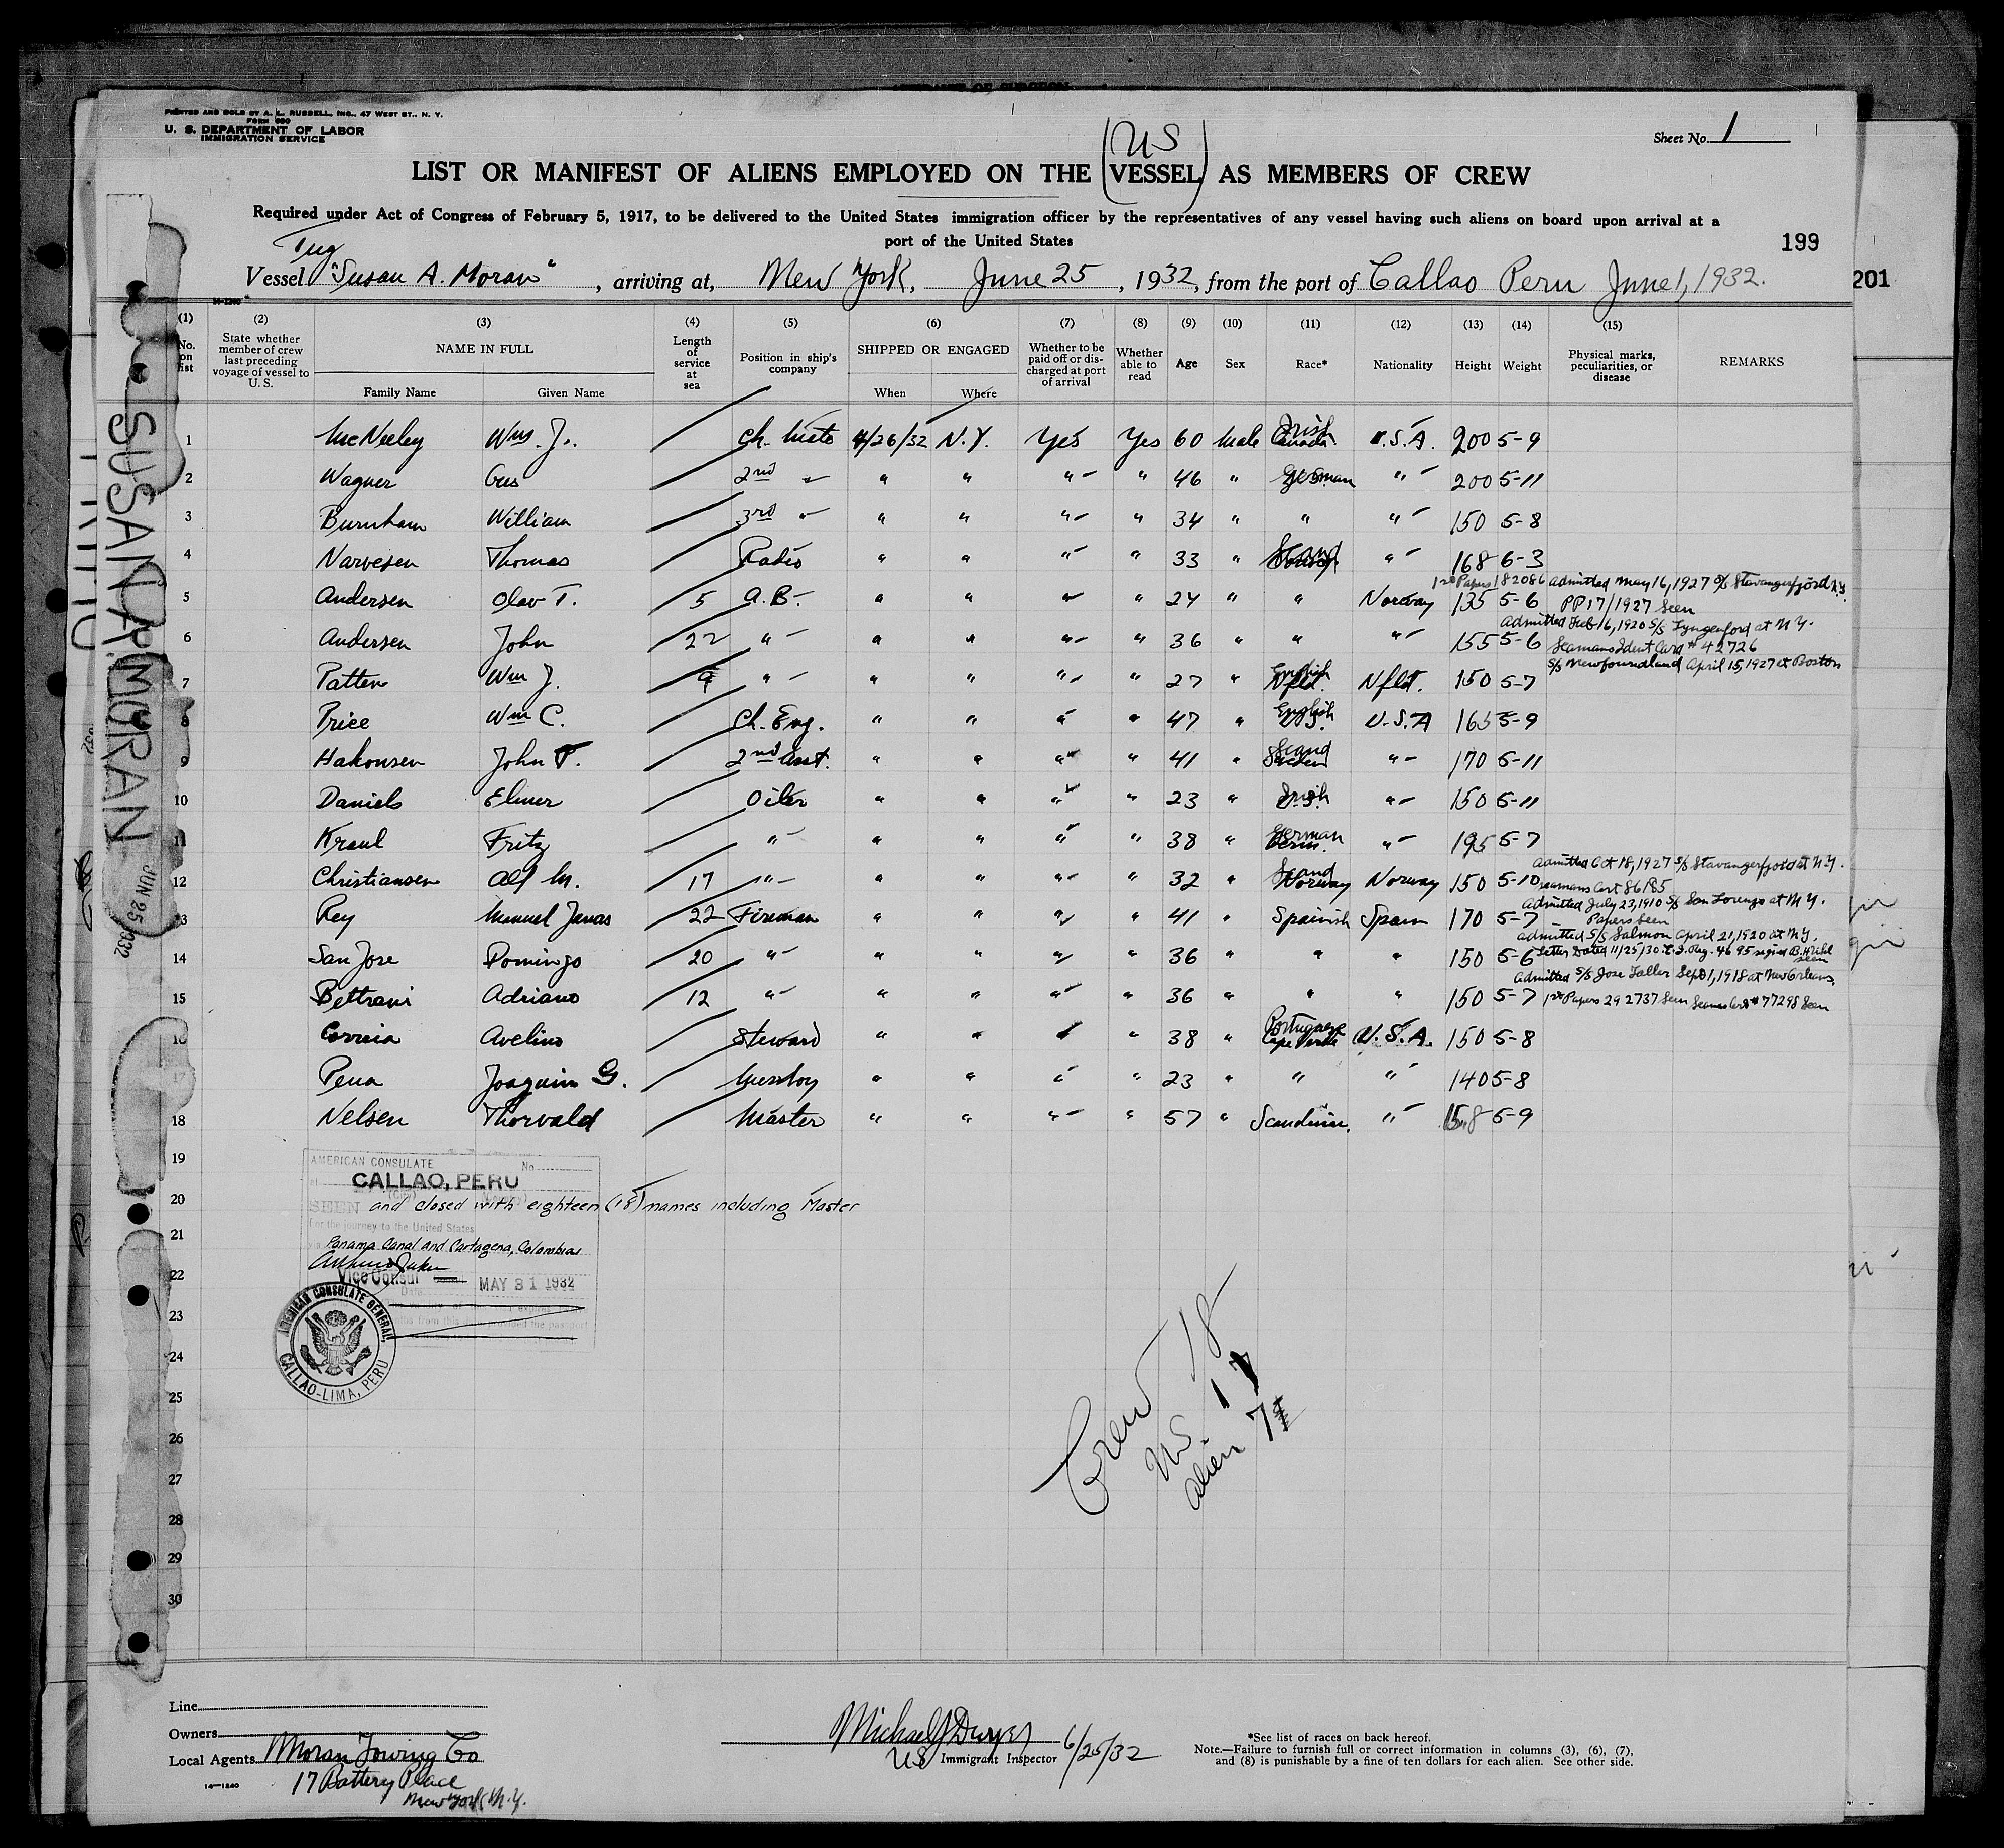 PRINTED AND SOLD BY A. L. RUSSELL, INC., 47 WEST ST., N. Y.
U. S. DEPARTMENT OF LABOR
IMMIGRATION SERVICE
Sheet No. 1
US
LIST OR MANIFEST OF ALIENS EMPLOYED ON THE (VESSEL) AS MEMBERS OF CREW
Required under Act of Congress of February 5, 1917, to be delivered to the United States immigration officer by the representatives of any vessel having such aliens on board upon arrival at a
port of the United States
199
201
Tug
Vessel "Susan A. Moran", arriving at, New York, June 25, 1932, from the port of Callao Peru June 1, 1932.
14-1240
(1) (2) (3) (4) (5) (6) (7) (8) (9) (10) (11) (12) (13) (14) (15)
No. on list State whether member of crew last preceding voyage of vessel to U. S. NAME IN FULL Length of service at sea Position in ship's company SHIPPED OR ENGAGED Whether to be paid off or discharged at port of arrival Whether able to read Age Sex Race* Nationality Height Weight Physical marks, peculiarities, or disease REMARKS
Family Name Given Name When Where
1 McNeeley Wm. J. Ch. Mate 4/26/32 N.Y. Yes Yes 60 Male Irish U.S.A. 200 5-9
2 Wagner Gus 2nd " " " " " 46 " German " 200 5-11
3 Burnham William 3rd " " " " " 34 " " " 150 5-8
4 Narvesen Thomas Radio " " " " 33 " Scand " 168 6-3
1st Papers 182086 admitted May 16, 1927 S/S Stavangerfjord N.Y.
5 Andersen Olav T. 5 A.B. " " " " 24 " " Norway 135 5-6 PP17/1927 Seen
Admitted Feb 16, 1920 S/S Lyngenfjord at N.Y.
6 Andersen John 22 " " " " " 36 " " " 155 5-6 Seamans Ident Card # 42726
S/S Newfoundland April 15, 1927 at Boston
7 Patten Wm J. 9 " " " " " 27 " English Nfld. Nfld. 150 5-7
8 Price Wm C. Ch. Eng. " " " " 47 " English U.S.A 165 5-9
9 Hakonsen John T. 2nd Asst. " " " " 41 " Scand Sweden " 170 5-11
10 Daniels Elmer Oiler " " " " 23 " Irish " 150 5-11
11 Kraul Fritz " " " " " 38 " German " 195 5-7
Admitted Oct 18, 1927 S/S Stavangerfjord at N.Y.
12 Christiansen Alf M. 17 " " " " " 32 " Scand Norway Norway 150 5-10 Seamans Cert 86185
Admitted July 23, 1910 S/S San Lorenzo at N.Y.
13 Rey Manuel Janas 22 Fireman " " " " 41 " Spainish Spain 170 5-7 Papers seen
Admitted S/S Salmon April 21, 1920 at N.Y.
14 San Jose Domingo 20 " " " " " 36 " " " 150 5-6 Letter Dated 11/25/30 seen
Admitted S/S Jose Taller Sept 1, 1918 at New Orleans
15 Beltrani Adriano 12 " " " " " 36 " " " 150 5-7 1st Papers 292737 Seen Seamans Card # 77298 Seen
16 Correia Avelino Steward " " " " 38 " Portuguese Cape Verde U.S.A. 150 5-8
17 Pena Joaquim G. Messboy " " " " 23 " " " 140 5-8
18 Nelsen Thorvald Master " " " " 57 " Scandinin. " 158 5-9
19
20
21
22
23
24
25
26
27
28
29
30
AMERICAN CONSULATE No.
at CALLAO, PERU
SEEN and closed with eighteen (18) names including Master
For the journey to the United States
Panama Canal and Cartagena, Colombia
Vice Consul MAY 31 1932
AMERICAN CONSULATE GENERAL, CALLAO-LIMA, PERU
SUSAN A. MORAN
JUN 25 1932
Crew 18
US. 11
alien 7
Line
Owners
Local Agents Moran Towing Co
17 Battery Place
New York N.Y.
14-1240
Michael J Dwyer 6/25/32
US Immigrant Inspector
*See list of races on back hereof.
Note.—Failure to furnish full or correct information in columns (3), (6), (7),
and (8) is punishable by a fine of ten dollars for each alien. See other side.